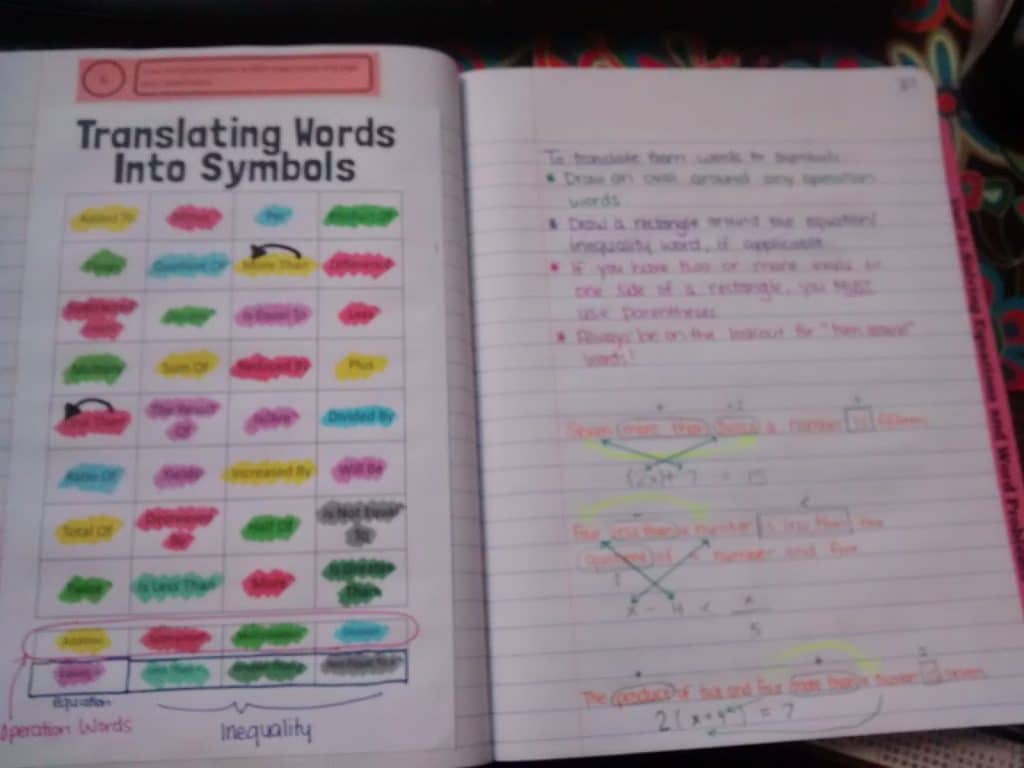 Translating Words
Into Symbols
Added To
Per
Product Of
Quotient Of
More Than
Difference
Is Equal To
Less
Multiply
Sum Of
Reduced By
Plus
Less Than
The Result
Of
Divided By
Ratio Of
Yields
Increased By
Will Be
Total Of
Decreased
By
Half Of
Is Not Equal
To
Twice
Is Less Than
Is Greater
Than
Addition
Equation
Operation Words
Inequality
To translate from words to symbols
Draw an oval around any operation
words.
Draw a rectangle around the equation/
inequality word, if applicable.
If you have two or more ovals on
one side of a rectangle, you MUST
use parentheses.
Always be on the lookout for "turn around"
words!
Seven more than twice a number is fifteen
(2x)+ 7 = 15
Four less than a number is less than the
quotient of a number and five.
x - 4 < x
5
The product of two and four more than a number is seven.
2(x+4) = 7
Unit 2: Solving Equations and Word Problems